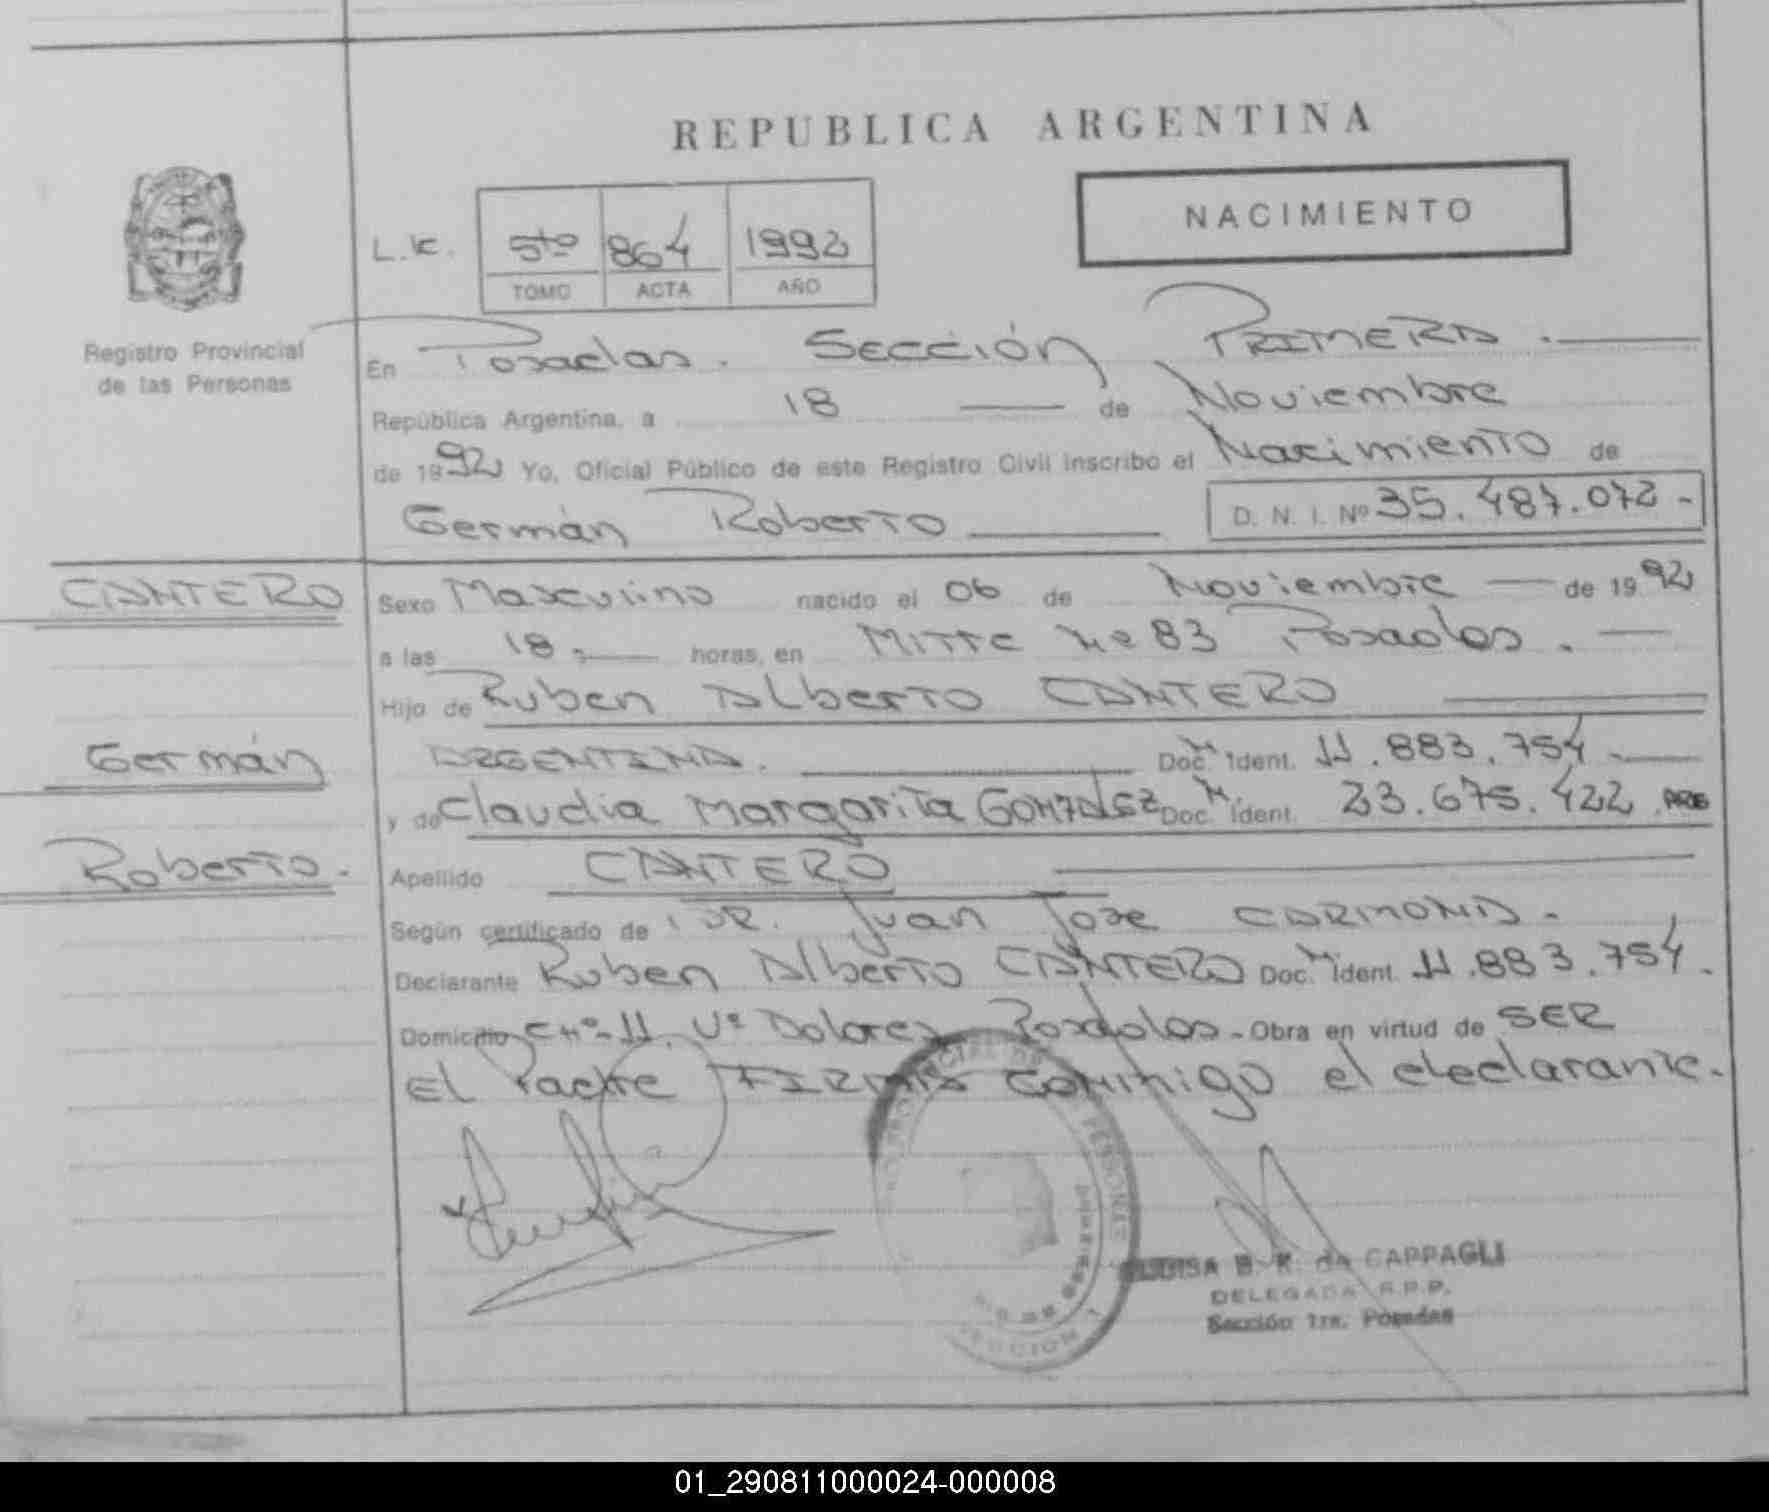 REPUBLICA ARGENTINA
NACIMIENTO
L.E. 5to 864 1992
TOMO ACTA AÑO
Registro Provincial
de las Personas
En Posadas. Sección PRIMERA.
República Argentina, a 18 de Noviembre
de 1992 Yo, Oficial Público de este Registro Civil inscribo el Nacimiento de
Germán Roberto D. N. I. Nº 35.487.072-
CANTERO
Sexo Masculino nacido el 06 de Noviembre de 1992
a las 18,- horas, en MITRE Nº 83 Posadas.
Hijo de Ruben Alberto CANTERO
Germán
ARGENTINA. Doc. Ident. 11.883.754
y de Claudia Margarita GONZALEZ Doc. Ident. 23.675.422 ARG
Roberto.
Apellido CANTERO
Según certificado de: DR. Juan Jose CARMONA.
Declarante Ruben Alberto CANTERO Doc. Ident. 11.883.754.
Domicilio CHº-11. Vª Dolores Posadas- Obra en virtud de SER
El Padre FIRMA conmigo el declarante.
PERSONAS
SECCION 1
B. K. de CAPPAGLI
DELEGADA R.P.P.
Sección 1ra. Posadas
01_290811000024-000008